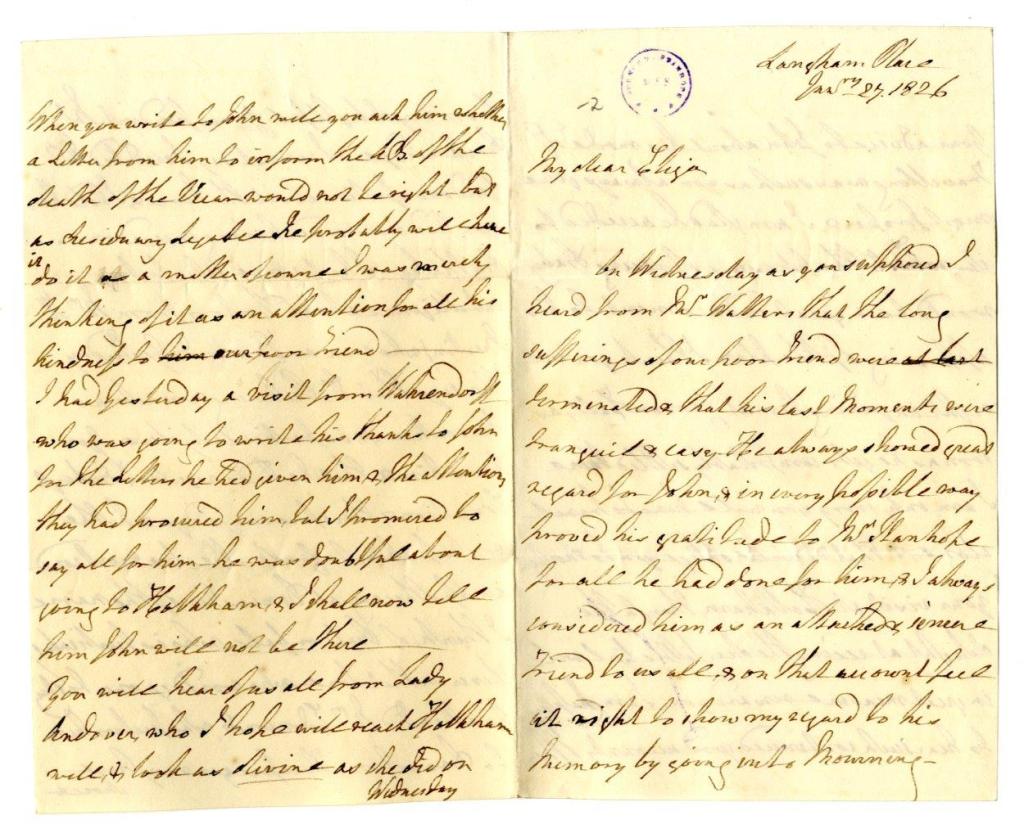 Langham Place
Jan.ry 27. 1826
2
My dear Eliza
On Wednesday as you supposed I
heard from Mr Walters that the long
sufferings of our poor Friend were at last
terminated & that his last Moments were
tranquil & easy He always showed great
regard for John, & in every possible way
proved his gratitude to Mr Stanhope
for all he had done for him, & I always
considered him as an attached & sincere
Friend to us all, & on that account feel
it right to show my regard to his
Memory by going into Mourning -
When you write to John will you ask him whether
a Letter from him to inform the of the
death of the Vicar would not be right but
as Residuary Legatee He probably will have
it
do it as a matter of course I was merely
thinking of it as an attention for all his
kindness to him our poor Friend
I had yesterday a visit from Wahrendorff
who was going to write his thanks to John
for the Letters he had given him & the attention
they had procured him, but I promised to
say all for him - he was doubtful about
going to Holkham, & I shall now tell
him John will not be there
You will hear of us all from Lady
Andover, who I hope will reach Holkham
well, & look as divine as she did on
Wednesday